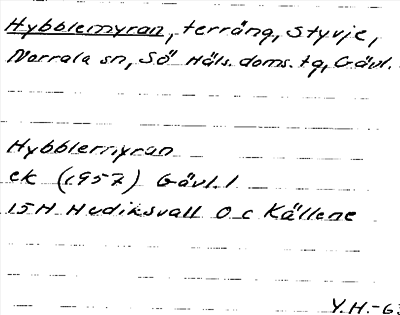 Hybblemyran, terräng, Styvje,
Norrala sn, Sö Häls. doms. tg, Gävl.
Hybblemyran
ek (1957) Gävl. l
15H Hudiksvall 0 c Källene
Y.H.-63